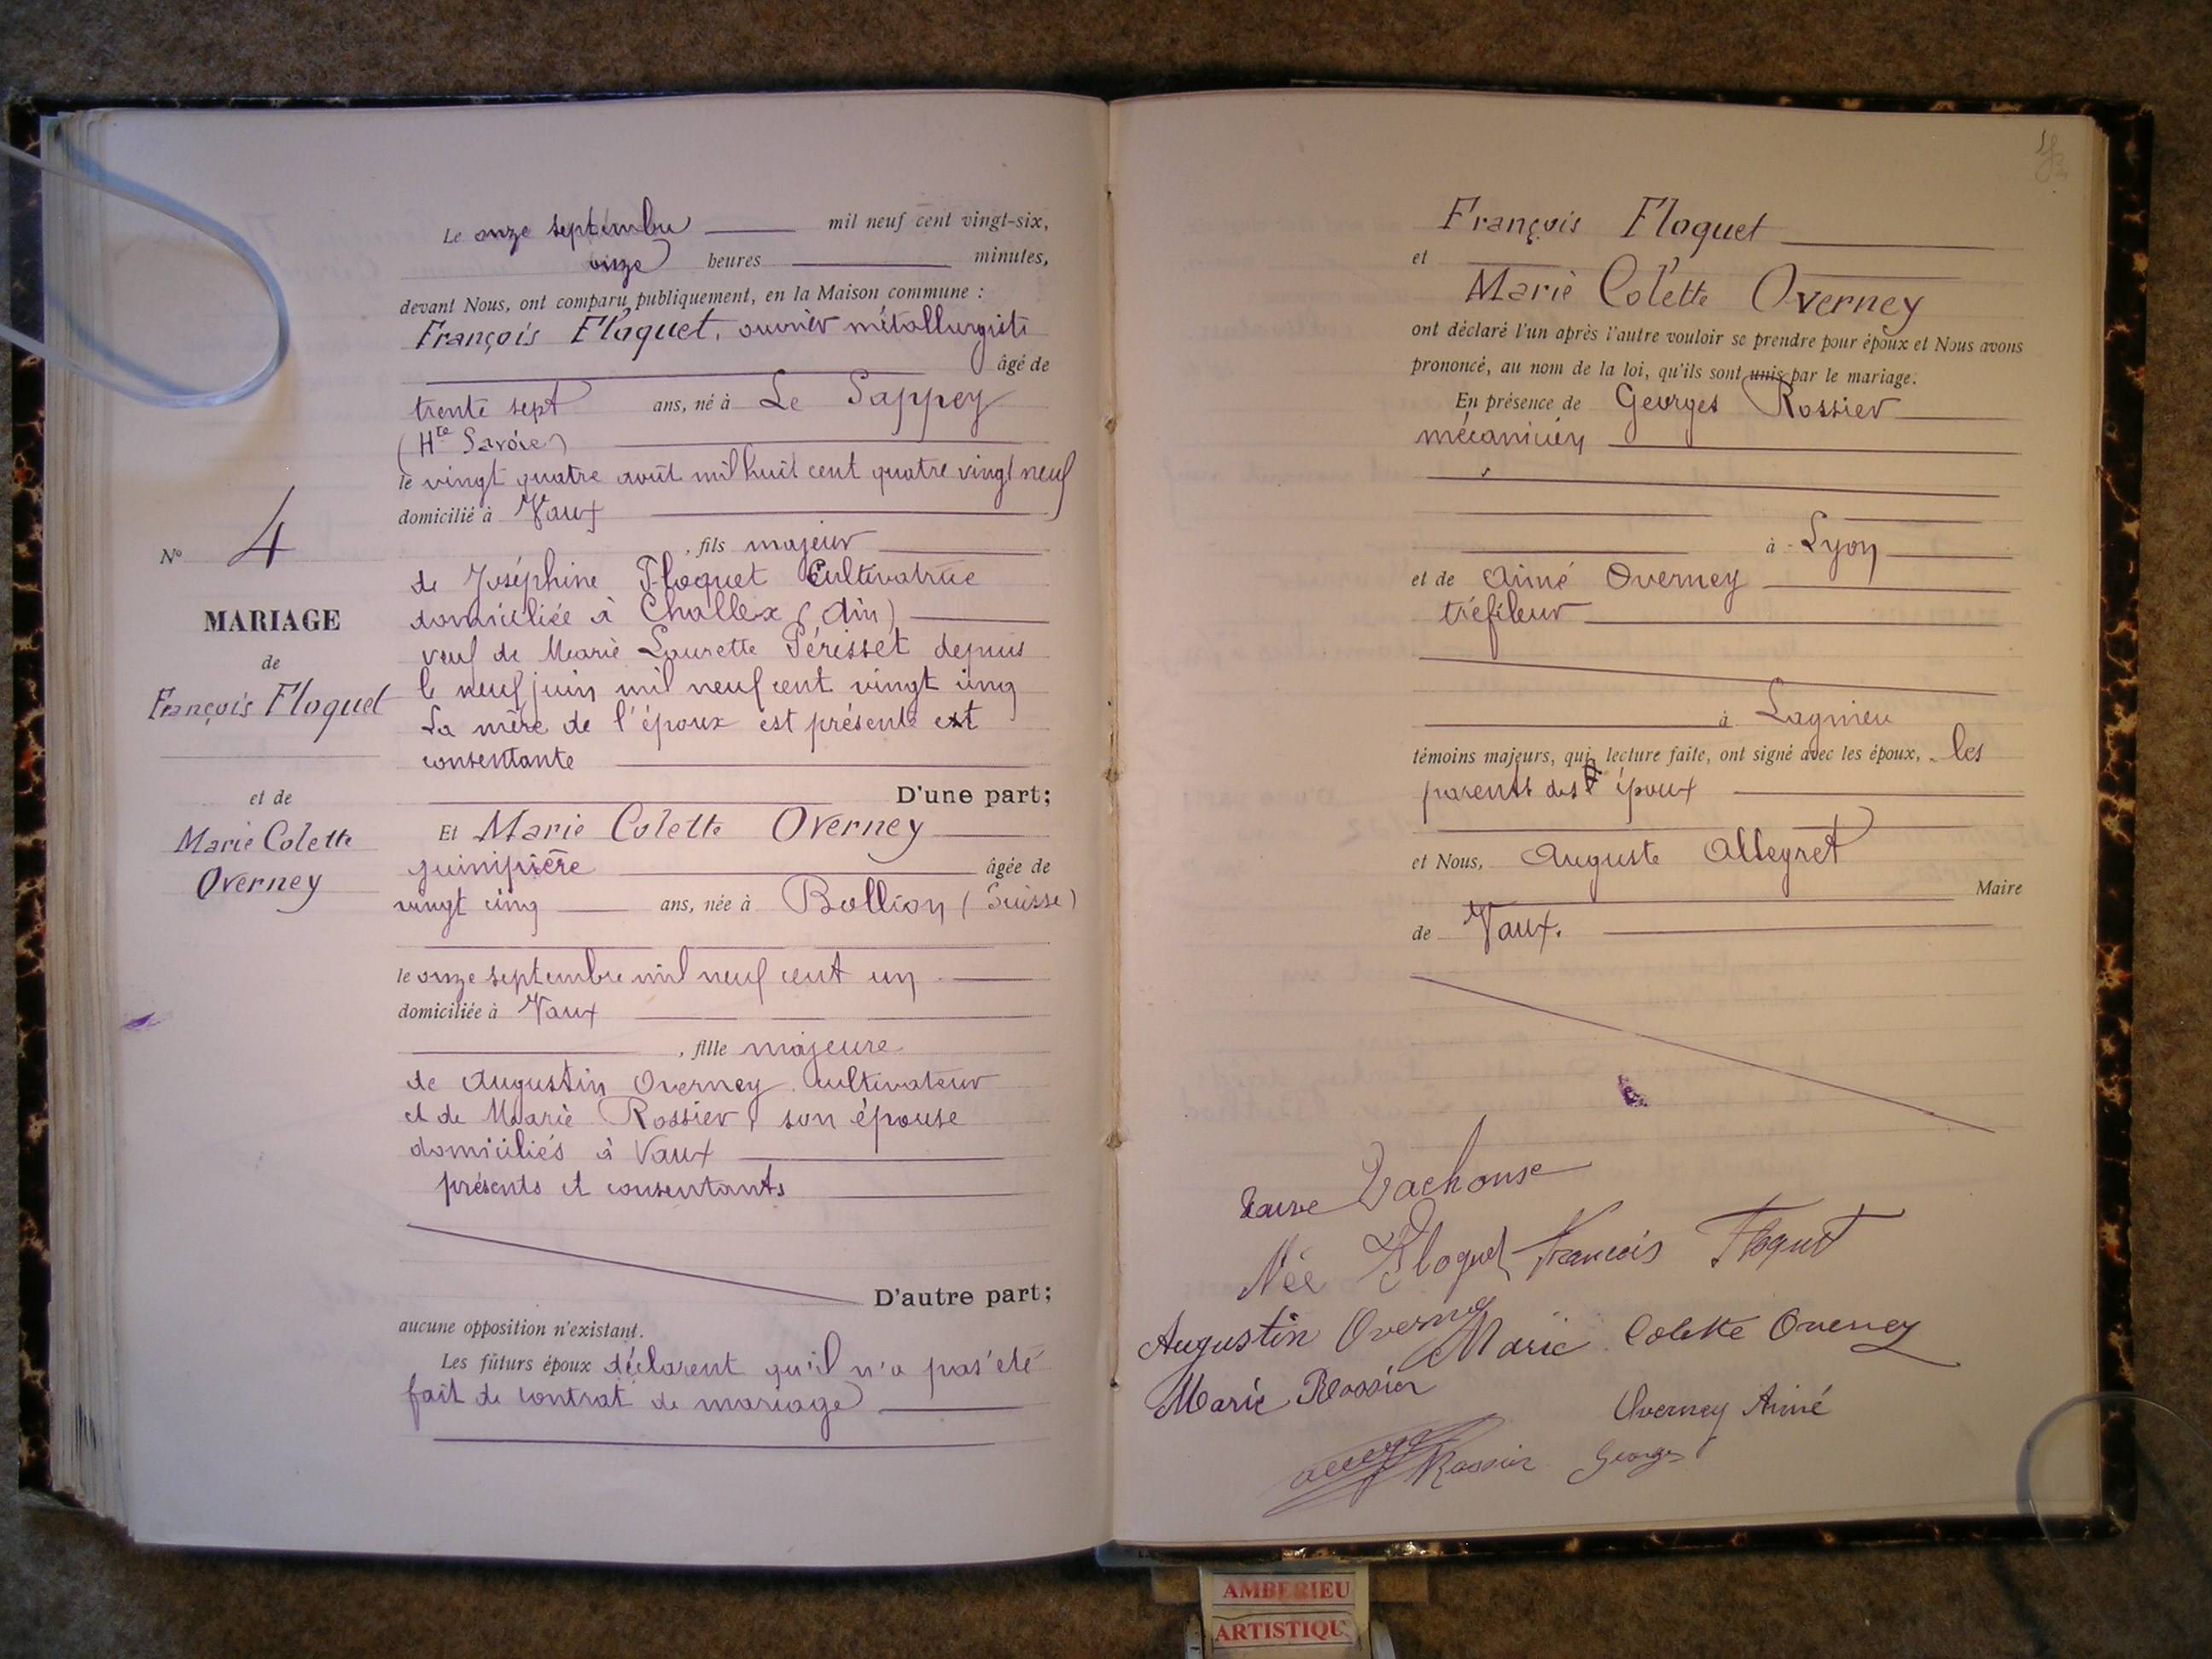 Le onze septembre mil neuf cent vingt-six,
onze heures minutes,
devant Nous, ont comparu publiquement, en la Maison commune :
François Floquet, ouvrier métallurgiste
âgé de
trente sept ans, né à Le Sappey
(Hte Savoie)
le vingt quatre août mil huit cent quatre vingt neuf
domicilié à Vaux
, fils majeur
de Joséphine Floquet Cultivatrice
domiciliée à Challex (Ain)
veuf de Marie Laurette Périsset depuis
le neuf juin mil neuf cent vingt cinq
La mère de l'époux est présente et
consentante
D'une part;
Et Marie Colette Overney
guimpière âgée de
vingt cinq ans, née à Bollion (Suisse)
le onze septembre mil neuf cent un
domiciliée à Vaux
, fille majeure
de Augustin Overney cultivateur
et de Marie Rossier son épouse
domiciliés à Vaux
présents et consentants
D'autre part;
aucune opposition n'existant.
Les futurs époux déclarent qu'il n'a pas été
fait de contrat de mariage
N° 4
MARIAGE
de
François Floquet
et de
Marie Colette
Overney
François Floquet
et
Marie Colette Overney
ont déclaré l'un après l'autre vouloir se prendre pour époux et Nous avons
prononcé, au nom de la loi, qu'ils sont unis par le mariage.
En présence de Georges Rossier
mécanicien
à Lyon
et de Aimé Overney
tréfileur
à Lagnieu
témoins majeurs, qui, lecture faite, ont signé avec les époux, les
parents des époux
et Nous, Auguste Alleyret
Maire
de Vaux.
Vachouse
Née Floquet François Floquet
Augustin Overney Marie Colette Overney
Marie Rossier
Overney Aimé
Rossier Georges
AMBERIEU
ARTISTIQU